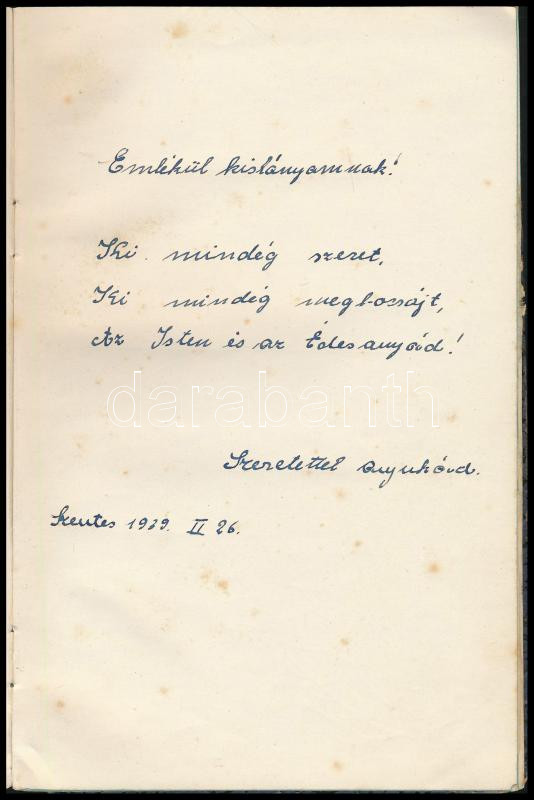 Emlékül kislányomnak!
Ki mindég szeret,
Ki mindég megbocsájt,
Az Isten és az Édesanyád!
darabanth
Szeretettel anyukád.
Szentes 1939. II 26.